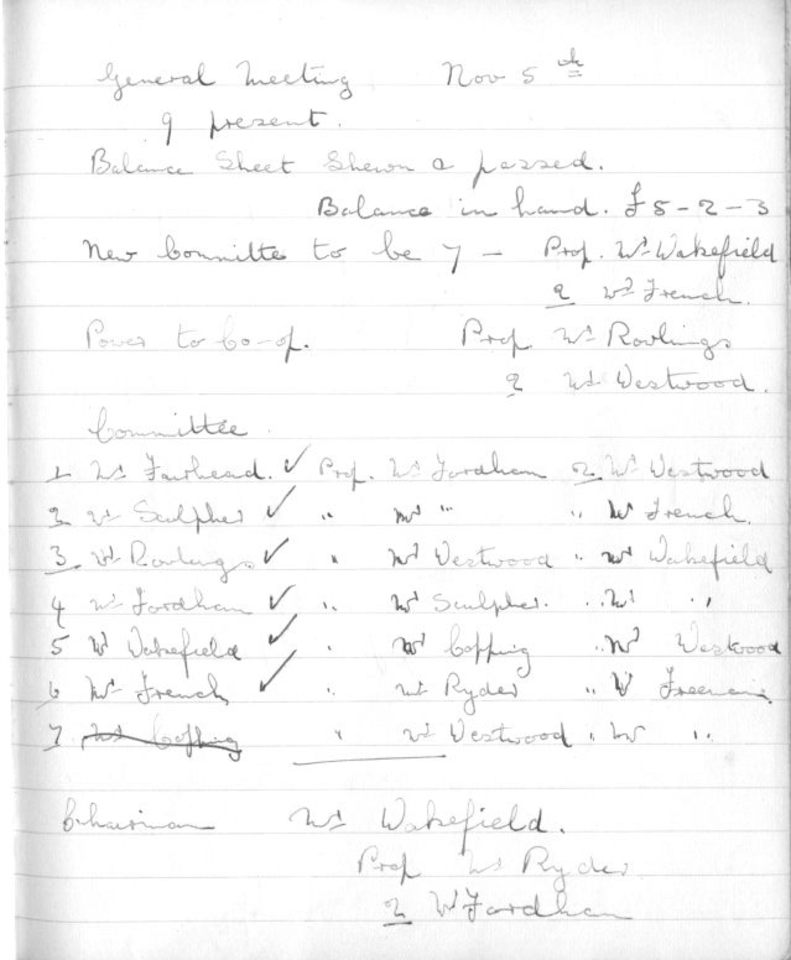 General Meeting Nov 5th
9 present.
Balance Sheet Shewn & passed.
Balance in hand. £5-2-3
New Committee to be 7 - Prop. Mr Wakefield
2 Mr French.
Power to Co-op. Prop Mr Rowlings
2 Mr Westwood.
Committee
1 Mr Fairhead. ✓ Prop. Mr Fordham 2 Mr Westwood
2 Mr Sculpher ✓ " Mr " " Mr French.
3. Mr Rowlings ✓ " Mr Westwood " Mr Wakefield
4 Mr Fordham ✓ " Mr Sculpher. " Mr "
5 Mr Wakefield ✓ " Mr Copping " Mr Westwood
6 Mr French ✓ " Mr Ryder " Mr Freeman.
7 Mr Copping " Mr Westwood " Mr "
Chairman Mr Wakefield.
Prop Mr Ryder
2 Mr Fordham